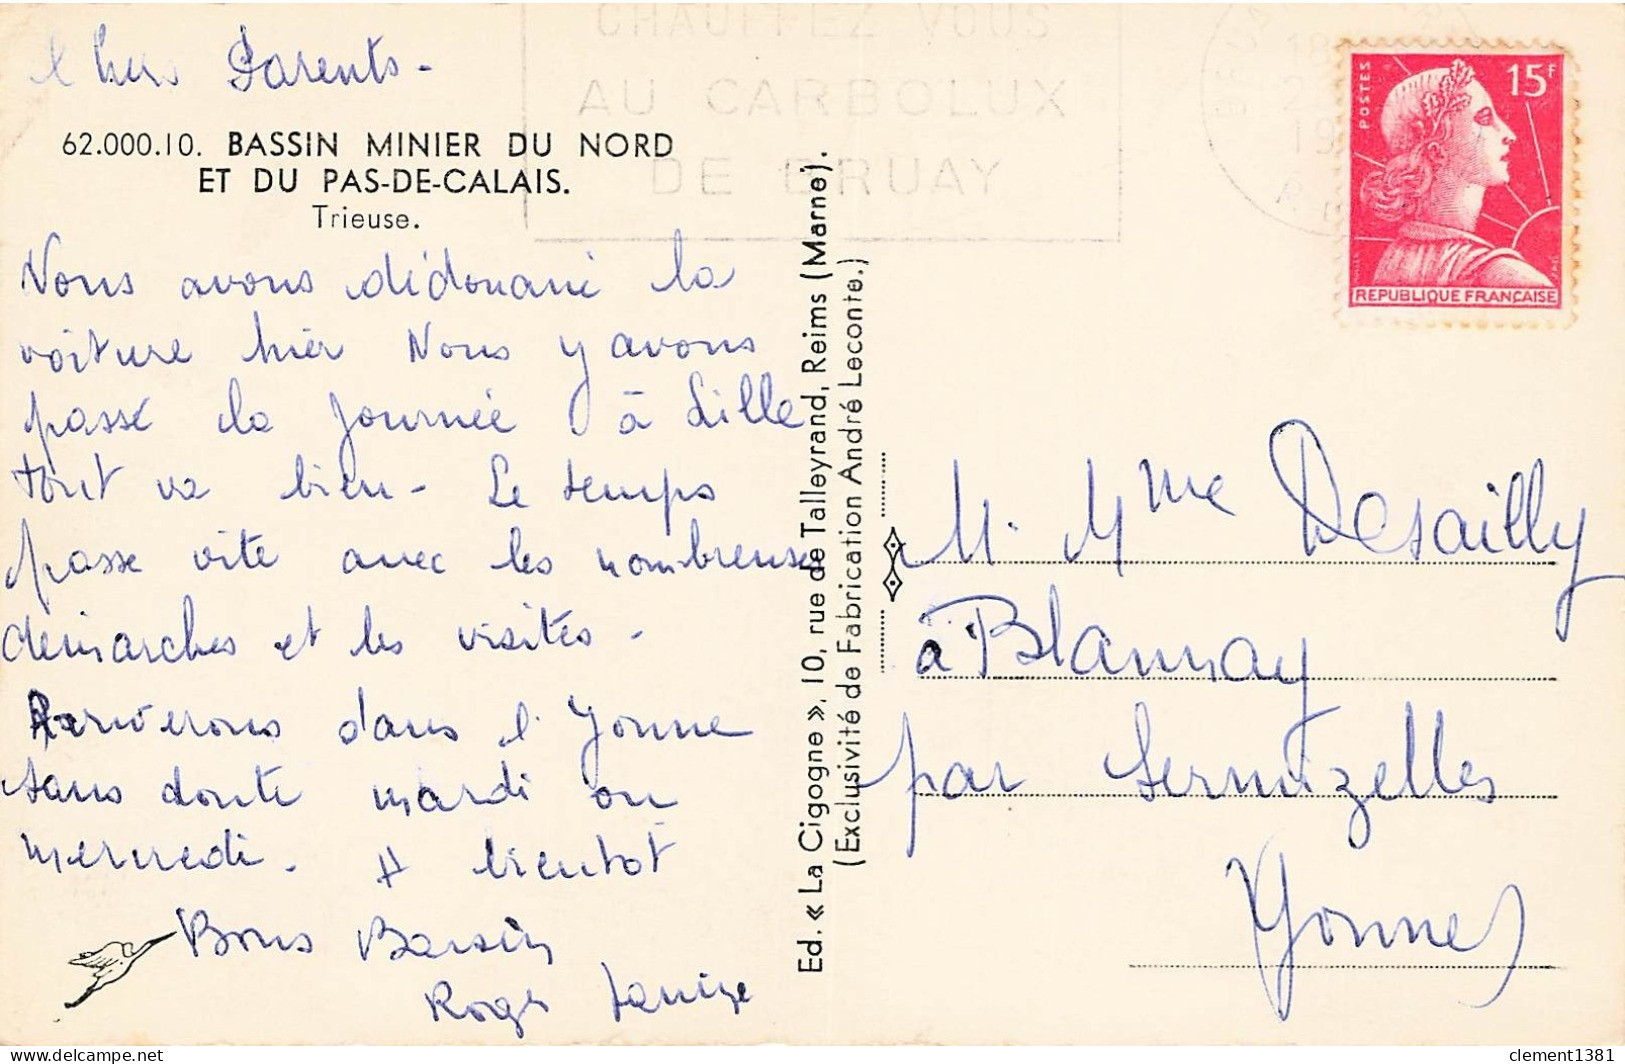 Chers Parents -
62.000.10. BASSIN MINIER DU NORD
ET DU PAS-DE-CALAIS.
Trieuse.
Nous avons dédouané la
voiture hier Nous y avons
passé la journée à Lille
tout va bien - Le temps
passe vite avec les nombreuses
démarches et les visites -
Arriverons dans l'Yonne
sans doute mardi ou
mercredi. A bientot
Bons Baisers
Roger
Ed. « La Cigogne », 10, rue de Talleyrand, Reims (Marne).
(Exclusivité de Fabrication André Leconte.)
CHAUFFEZ VOUS
AU CARBOLUX
DE BRUAY
POSTES
15F
REPUBLIQUE FRANÇAISE
M. Mme Desailly
à Blannay
par Sermizelles
Yonne
clement1381